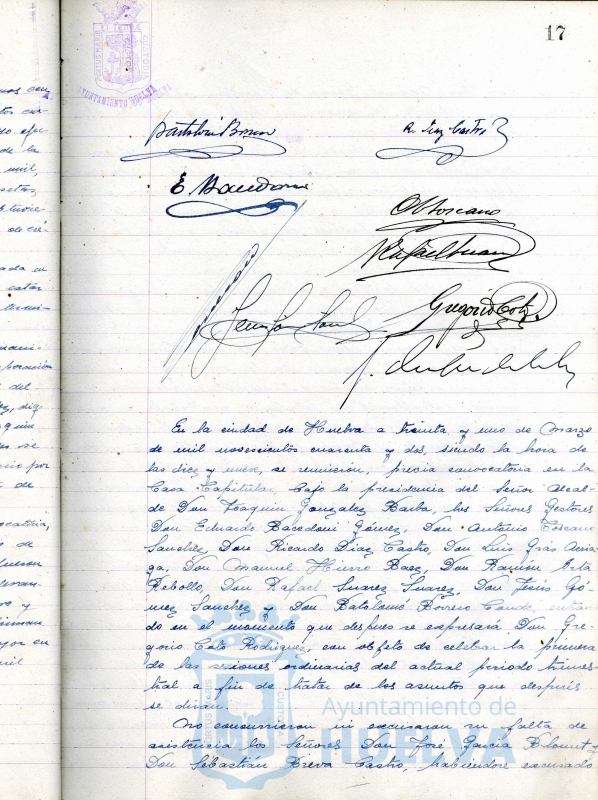 17
AYUNTAMIENTO HUELVA
E. Bacedoni
R. Diaz Castro
A Toscano
Rafael Suarez
Gregorio Coto
En la ciudad de Huelva a treinta y uno de Marzo
de mil novescientos cuarenta y dos, siendo la hora de
las diez y nueve, se reunieron, previa convocatoria en la
Casa Capitular, bajo la presidencia del Señor Alcal-
de Don Joaquin Gonzalez Barba, los Señores Gestores
Don Eduardo Bacedoni Gómez, Don Antonio Toscano
Sanchez, Don Ricardo Diaz Castro, Don Luis Gras
Don Manuel Hierro Baez, Don Ramón
Rebollo, Don Rafael Suarez Suarez, Don Jesús Gó-
mez Sanchez y Don Bartolomé Borrero Conde, entran-
do en el momento que despues se expresará Don Gre-
gorio Coto Rodriguez, con objeto de celebrar la primera
de las sesiones ordinarias del actual periodo trimes-
tral a fin de tratar de los asuntos que después
se diran.
No concurrieron ni excusaron su falta de
asistencia los Señores Don José Garcia
Don Sebastián Breva Castro, habiendose excusado
Ayuntamiento de
HUELVA